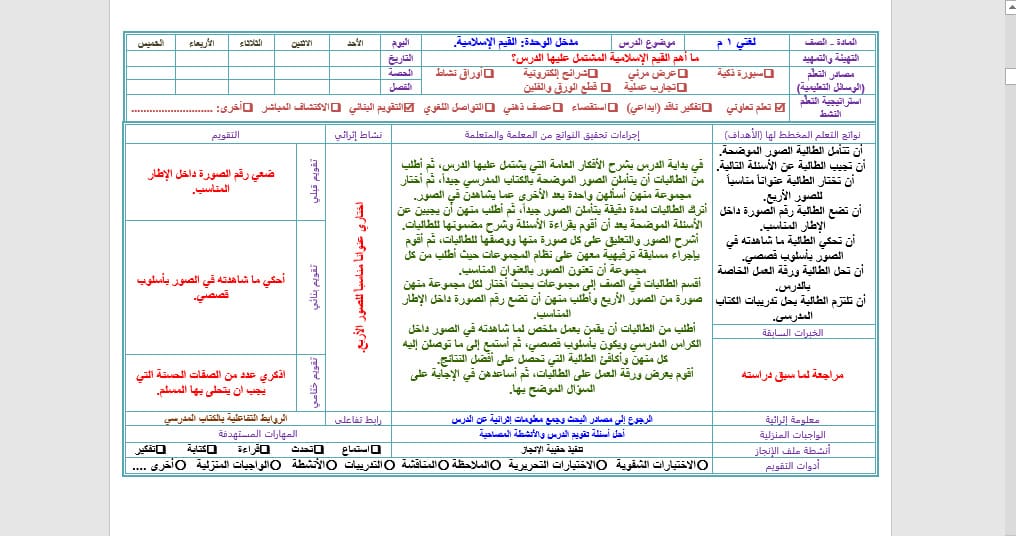 المادة – الصف
لغتي ١ م
موضوع الدرس
مدخل الوحدة: القيم الإسلامية.
اليوم
الأحد
الاثنين
الثلاثاء
الأربعاء
الخميس
التهيئة والتمهيد
ما أهم القيم الإسلامية المشتمل عليها الدرس؟
التاريخ
مصادر التعلم
(الوسائل التعليمية)
سبورة ذكية
عرض مرئي
شرائح إلكترونية
أوراق نشاط
الحصة
تجارب عملية
قطع الورق والفلين
الفصل
استراتيجية التعلم
النشط
تعلم تعاوني
تفكير ناقد (ابداعي)
استقصاء
عصف ذهني
التواصل اللغوي
التقويم البنائي
الاكتشاف المباشر
أخرى: ...........................
نواتج التعلم المخطط لها (الأهداف)
إجراءات تحقيق النواتج من المعلمة والمتعلمة
نشاط إثرائي
التقويم
أن تتأمل الطالبة الصور الموضحة.
أن تجيب الطالبة عن الأسئلة التالية.
أن تختار الطالبة عنواناً مناسباً
للصور الأربع.
أن تضع الطالبة رقم الصورة داخل
الإطار المناسب.
أن تحكي الطالبة ما شاهدته في
الصور بأسلوب قصصي.
أن تحل الطالبة ورقة العمل الخاصة
بالدرس.
أن تلتزم الطالبة بحل تدريبات الكتاب
المدرسي.
الخبرات السابقة
مراجعة لما سبق دراسته
في بداية الدرس بشرح الأفكار العامة التي يشتمل عليها الدرس، ثم أطلب
من الطالبات أن يتأملن الصور الموضحة بالكتاب المدرسي جيداً، ثم أختار
مجموعة منهن أسألهن واحدة بعد الأخرى عما يشاهدن في الصور.
أترك الطالبات لمدة دقيقة يتأملن الصور جيداً، ثم أطلب منهن أن يجيبن عن
الأسئلة الموضحة بعد أن أقوم بقراءة الأسئلة وشرح مضمونها للطالبات.
أشرح الصور والتعليق على كل صورة منها ووصفها للطالبات، ثم أقوم
بإجراء مسابقة ترفيهية معهن على نظام المجموعات حيث أطلب من كل
مجموعة أن تعنون الصور بالعنوان المناسب.
أقسم الطالبات في الصف إلى مجموعات بحيث أختار لكل مجموعة منهن
صورة من الصور الأربع وأطلب منهن أن تضع رقم الصورة داخل الإطار
المناسب.
أطلب من الطالبات أن يقمن بعمل ملخص لما شاهدته في الصور داخل
الكراس المدرسي ويكون بأسلوب قصصي، ثم أستمع إلى ما توصلن إليه
كل منهن وأكافئ الطالبة التي تحصل على أفضل النتائج.
أقوم بعرض ورقة العمل على الطالبات، ثم أساعدهن في الإجابة على
السؤال الموضح بها.
اختاري عنواناً مناسباً للصور الأربع.
تقويم قبلي
ضعي رقم الصورة داخل الإطار
المناسب.
تقويم بنائي
أحكي ما شاهدته في الصور بأسلوب
قصصي.
تقويم ختامي
اذكري عدد من الصفات الحسنة التي
يجب ان يتحلى بها المسلم.
معلومة إثرائية
الرجوع إلى مصادر البحث وجمع معلومات إثرائية عن الدرس
رابط تفاعلي
الروابط التفاعلية بالكتاب المدرسي
الواجبات المنزلية
أحل أسئلة تقويم الدرس والأنشطة المصاحبة
المهارات المستهدفة
أنشطة ملف الإنجاز
تنفيذ حقيبة الإنجاز
استماع
تحدث
قراءة
كتابة
تفكير
أدوات التقويم
الاختبارات الشفوية
الاختبارات التحريرية
الملاحظة
المناقشة
التدريبات
الأنشطة
الواجبات المنزلية
أخرى ....